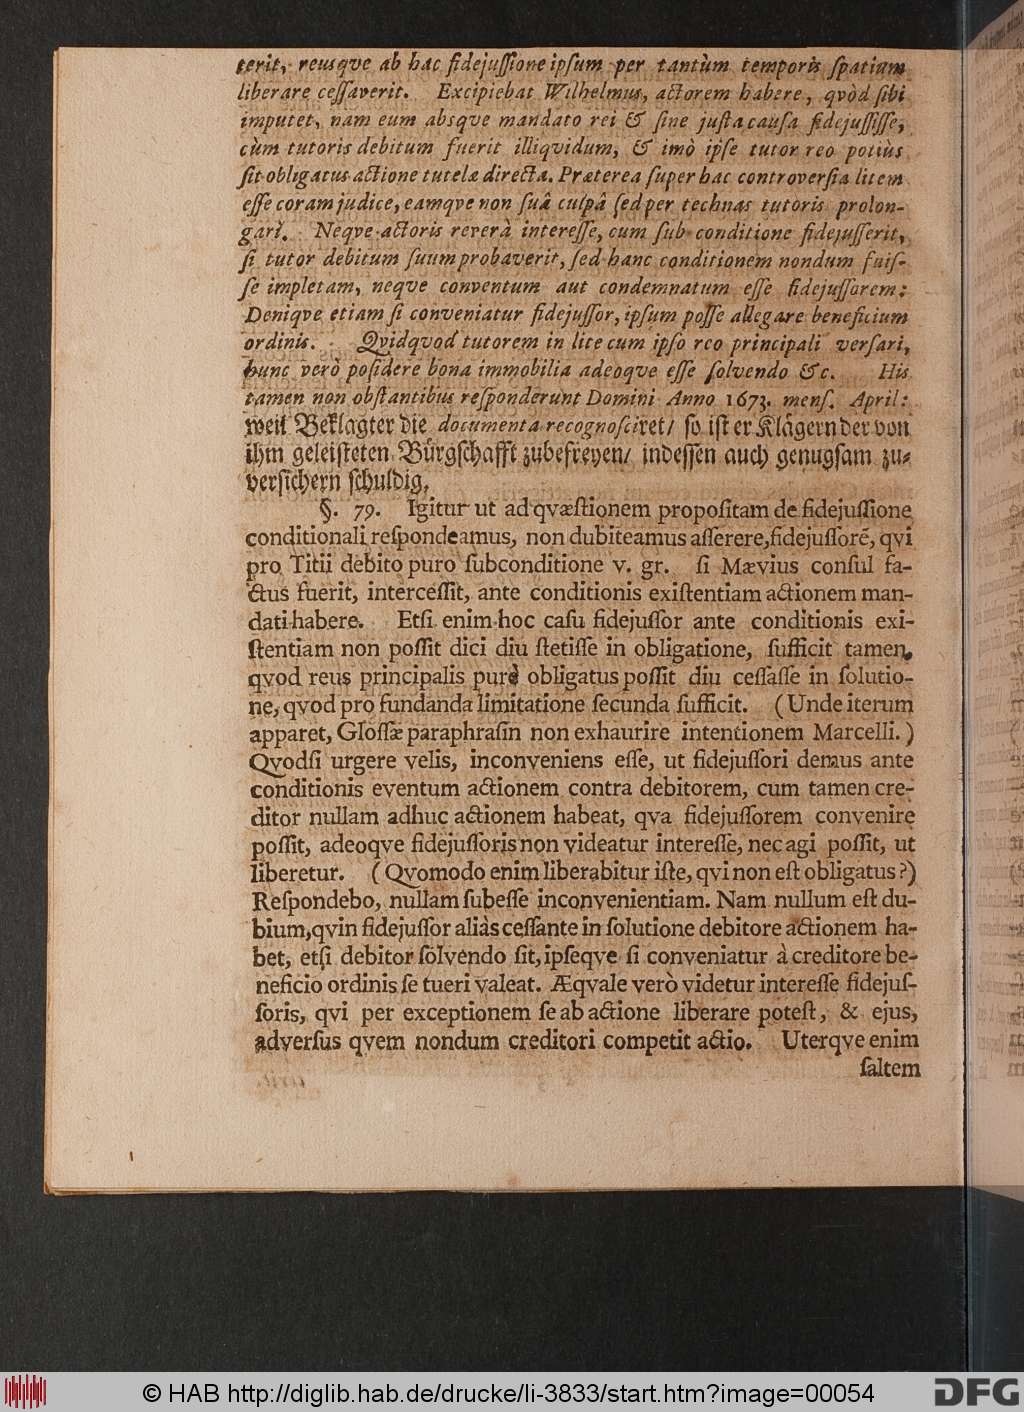 terit, reusqve ab hac fidejuſſione ipſum per tantùm temporis ſpatium
liberare ceſſaverit. Excipiebat Wilhelmus, actorem habere, qvòd ſibi
imputet, nam eum absqve mandato rei & ſine juſta cauſa fidejuſſiſſe,
cùm tutoris debitum fuerit illiqvidum, & imò ipſe tutor reo potiùs
ſit obligatus actione tutelæ directa. Præterea ſuper hac controverſia litem
eſſe coram judice, eamqve non ſuâ culpâ ſed per technas tutoris prolon-
gari. Neqve actoris reverà intereſſe, cum ſub conditione fidejuſſerit,
ſi tutor debitum ſuum probaverit, ſed hanc conditionem nondum fuiſ-
ſe impletam, neqve conventum aut condemnatum eſſe fidejuſſorem:
Deniqve etiam ſi conveniatur fidejuſſor, ipſum poſſe allegare beneficium
ordinis. Qvidqvod tutorem in lite cum ipſo reo principali verſari,
hunc verò poſidere bona immobilia adeoqve eſſe ſolvendo &c. His
tamen non obſtantibus reſponderunt Domini Anno 1673. menſ. April:
weil Beklagter die documenta recognoſciret/ ſo iſt er Klägern der von
ihm geleiſteten Bürgſchafft zubefreyen/ indeſſen auch genugſam zu-
verſichern ſchuldig.
§. 79. Igitur ut ad qvæſtionem propoſitam de fidejuſſione
conditionali reſpondeamus, non dubiteamus aſſerere, fidejuſſorē, qvi
pro Titii debito puro ſub conditione v. gr. ſi Mævius conſul fa-
ctus fuerit, interceſſit, ante conditionis exiſtentiam actionem man-
dati habere. Etſi enim hoc caſu fidejuſſor ante conditionis exi-
ſtentiam non poſſit dici diu ſtetiſſe in obligatione, ſufficit tamen,
qvod reus principalis purè obligatus poſſit diu ceſſaſſe in ſolutio-
ne, qvod pro fundanda limitatione ſecunda ſufficit. (Unde iterum
apparet, Gloſſæ paraphraſin non exhaurire intentionem Marcelli.)
Qvodſi urgere velis, inconveniens eſſe, ut fidejuſſori demus ante
conditionis eventum actionem contra debitorem, cum tamen cre-
ditor nullam adhuc actionem habeat, qva fidejuſſorem convenire
poſſit, adeoqve fidejuſſoris non videatur intereſſe, nec agi poſſit, ut
liberetur. (Qvomodo enim liberabitur iſte, qvi non eſt obligatus?)
Reſpondebo, nullam ſubeſſe inconvenientiam. Nam nullum eſt du-
bium, qvin fidejuſſor aliàs ceſſante in ſolutione debitore actionem ha-
bet, etſi debitor ſolvendo ſit, ipſeqve ſi conveniatur à creditore be-
neficio ordinis ſe tueri valeat. Æqvale verò videtur intereſſe fidejuſ-
ſoris, qvi per exceptionem ſe ab actione liberare poteſt, & ejus,
adverſus qvem nondum creditori competit actio. Uterqve enim
ſaltem
© HAB http://diglib.hab.de/drucke/li-3833/start.htm?image=00054
DFG